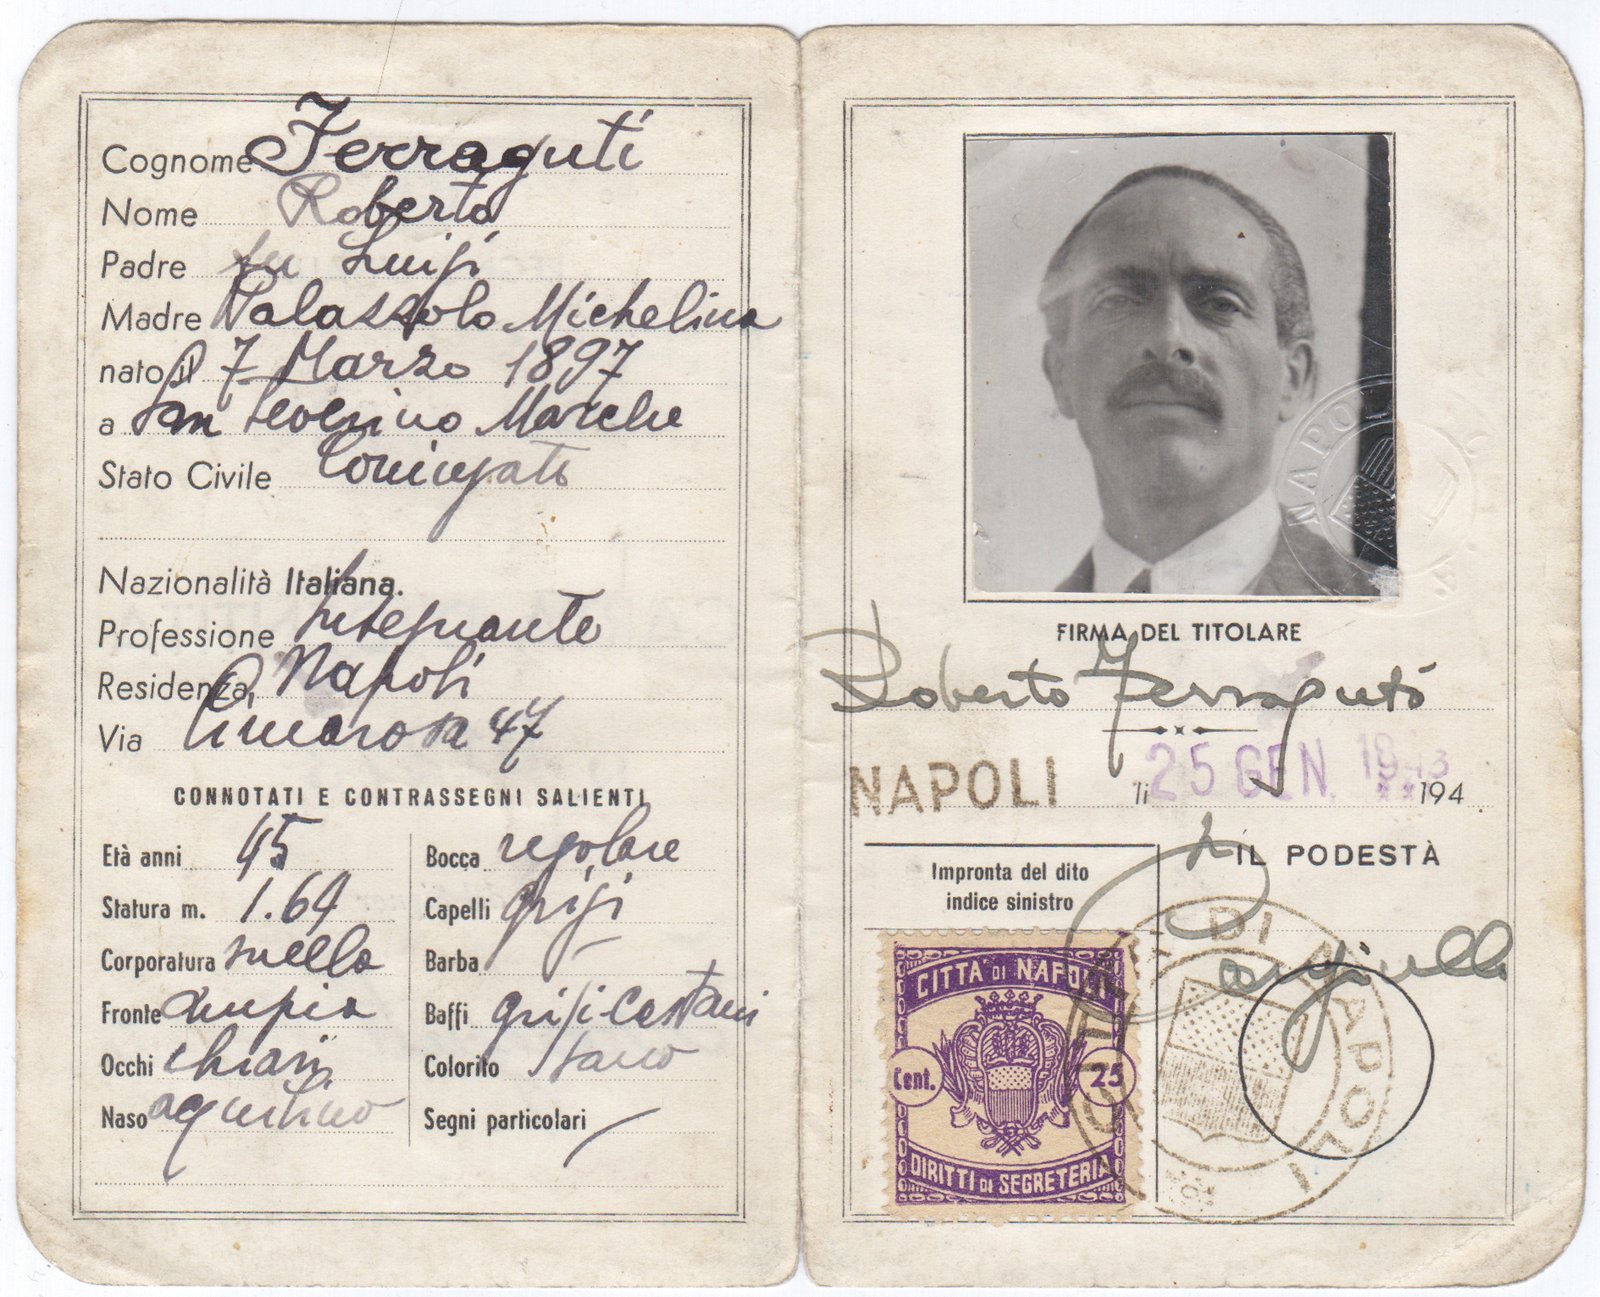 Cognome Ferraguti
Nome Roberto
Padre fu Luigi
Madre Palazzolo Michelina
nato il 7 Marzo 1897
a San Severino Marche
Stato Civile Coniugato
Nazionalità Italiana.
Professione Insegnante
Residenza Napoli
Via Cimarosa 47
CONNOTATI E CONTRASSEGNI SALIENTI
Età anni 45
Statura m. 1.64
Corporatura snella
Fronte ampia
Occhi chiari
Naso aquilino
Bocca regolare
Capelli grigi
Barba –
Baffi grigi-castani
Colorito
Segni particolari
NAPO
FIRMA DEL TITOLARE
Roberto Ferraguti
NAPOLI li 25 GEN. 1943 194
IL PODESTÀ
Impronta del dito
indice sinistro
CITTÀ DI NAPOLI
Cent. 25
DIRITTI DI SEGRETERIA
DI NAPOLI